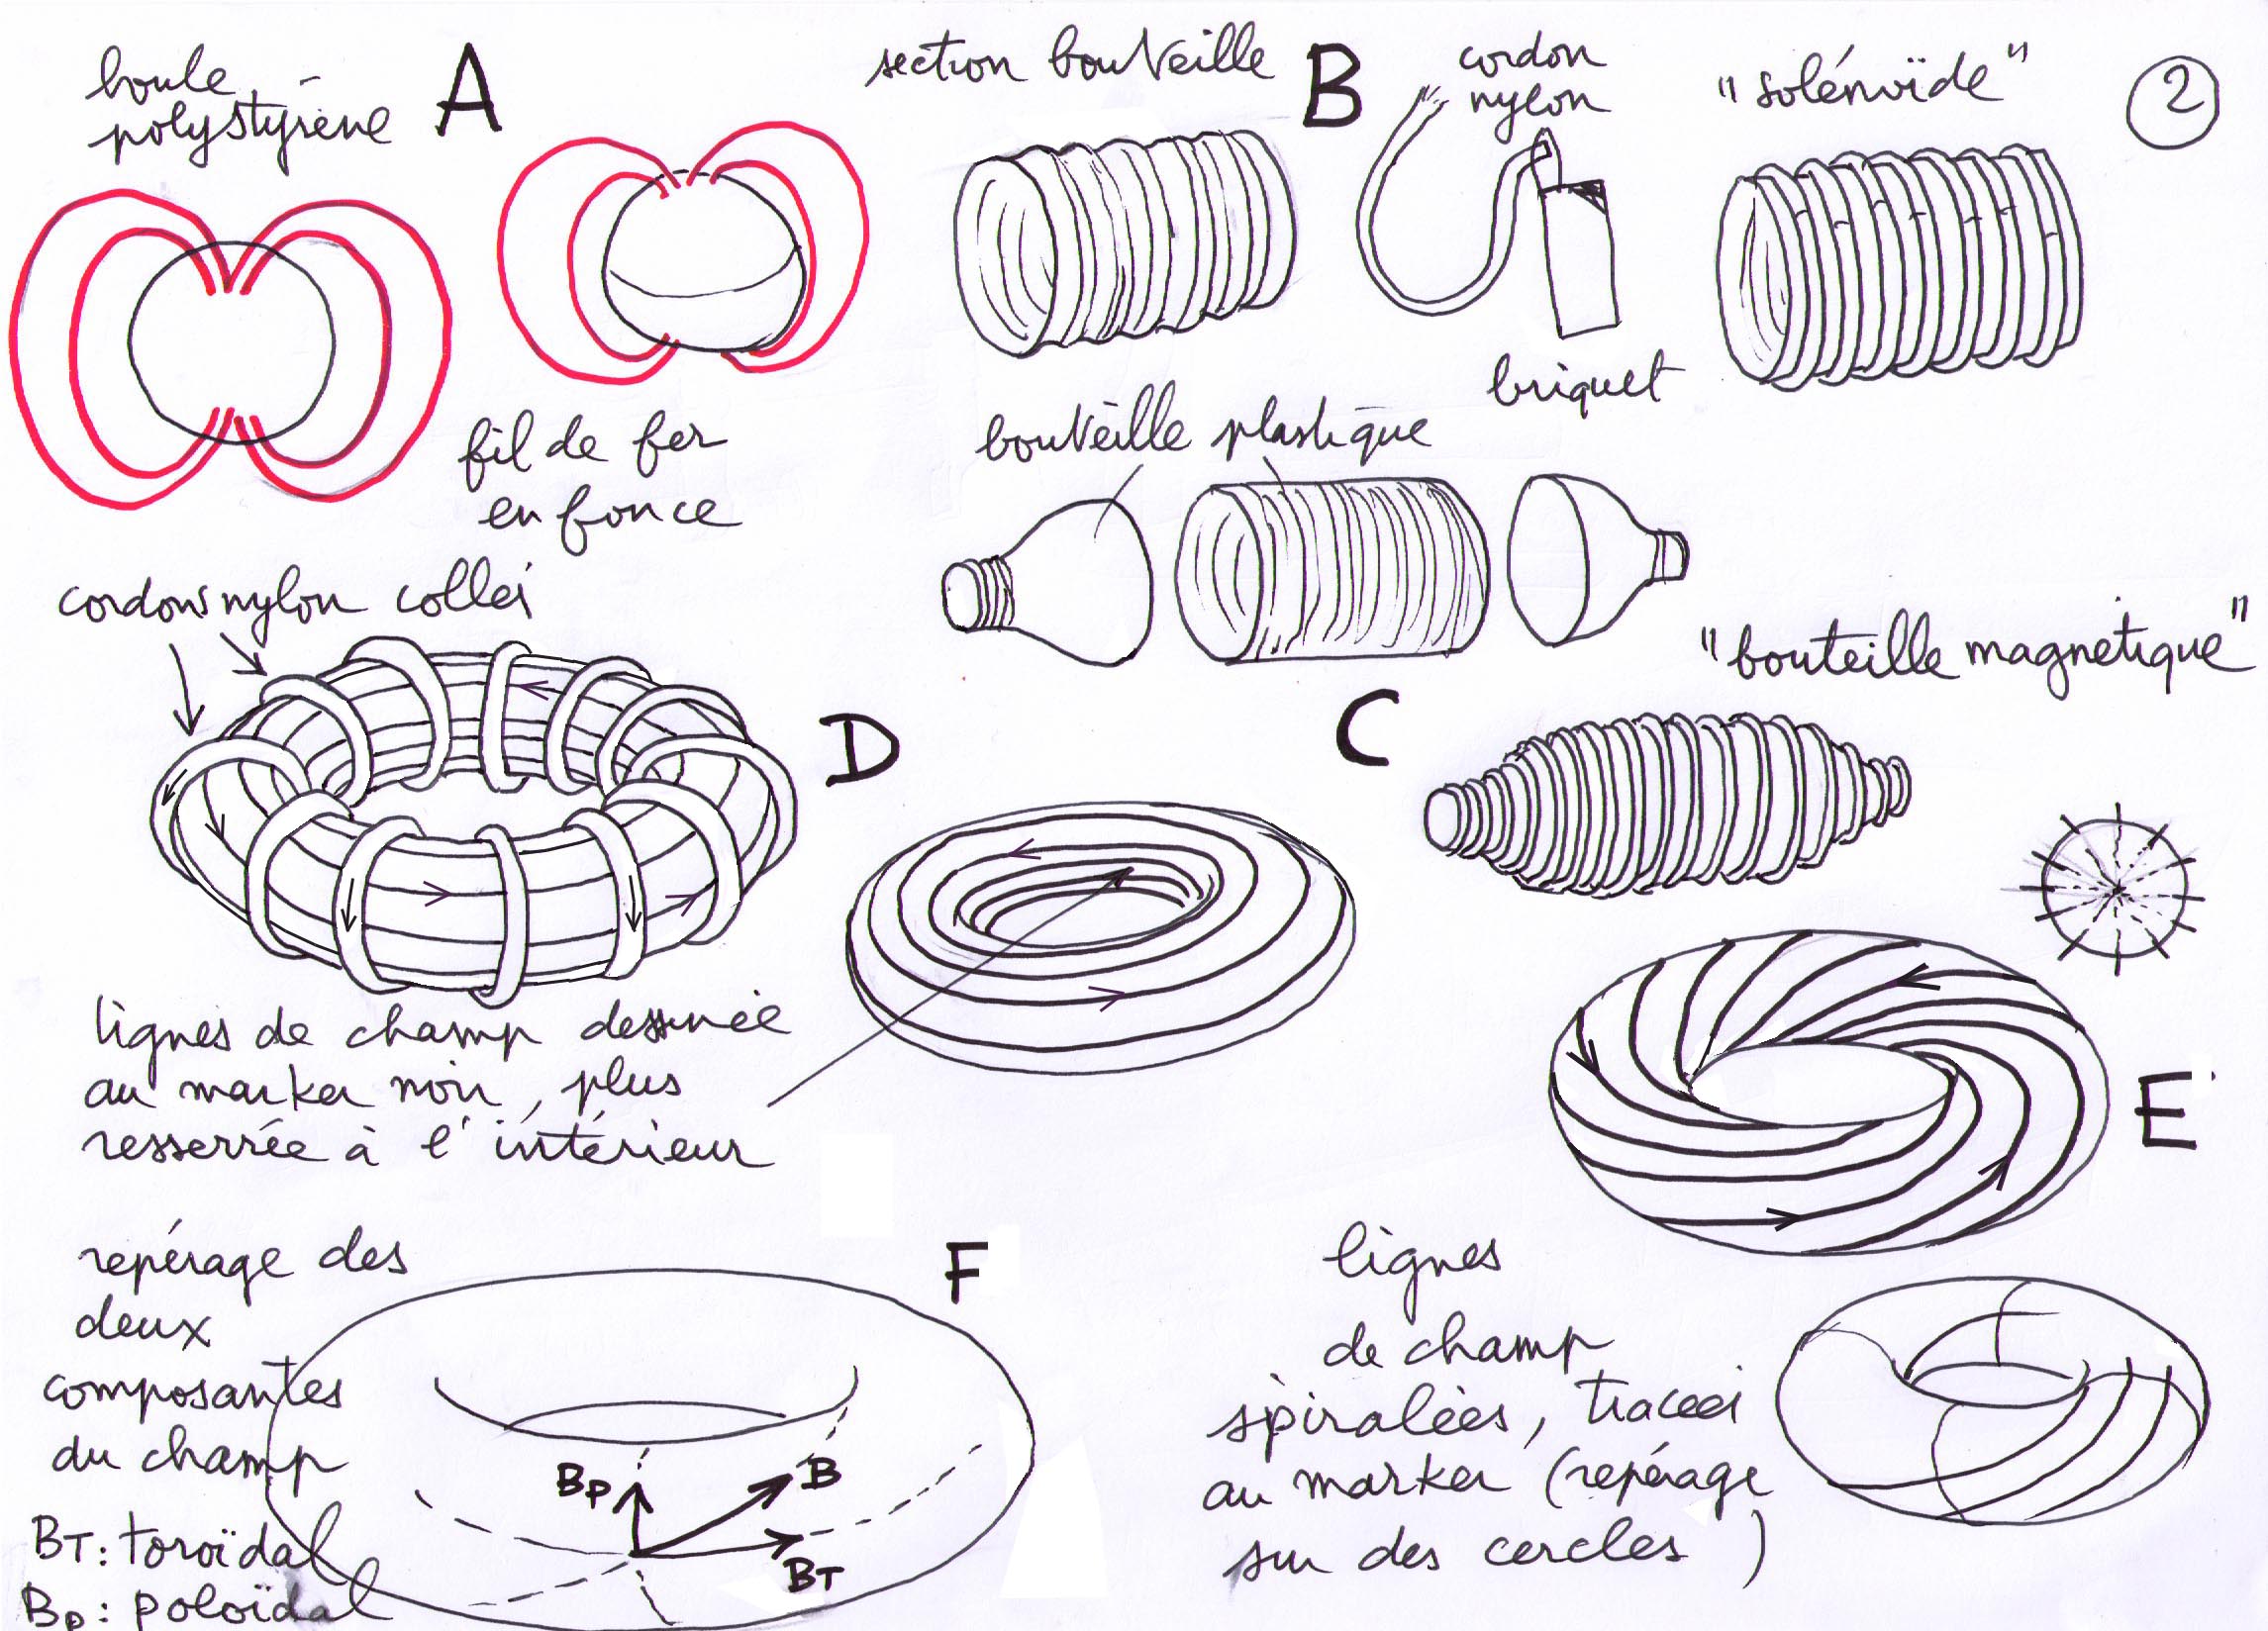 boule
polystyrène
A
section bouteille
B
cordon
nylon
"solénoïde"
2
fil de fer
enfoncé
briquet
bouteille plastique
cordons nylon collés
"bouteille magnétique"
D
C
lignes de champ dessinée
au marker noir, plus
resserrée à l'intérieur
E
repérage des
deux
composantes
du champ
BT: toroïdal
Bp: poloïdal
F
Bp
B
BT
lignes
de champ
spiralées, tracées
au marker (repérage
sur des cercles)